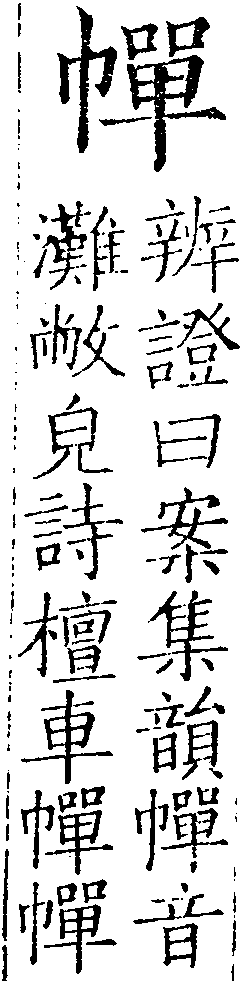 幝
辨證曰案集韻幝音
灘敝皃詩檀車幝幝